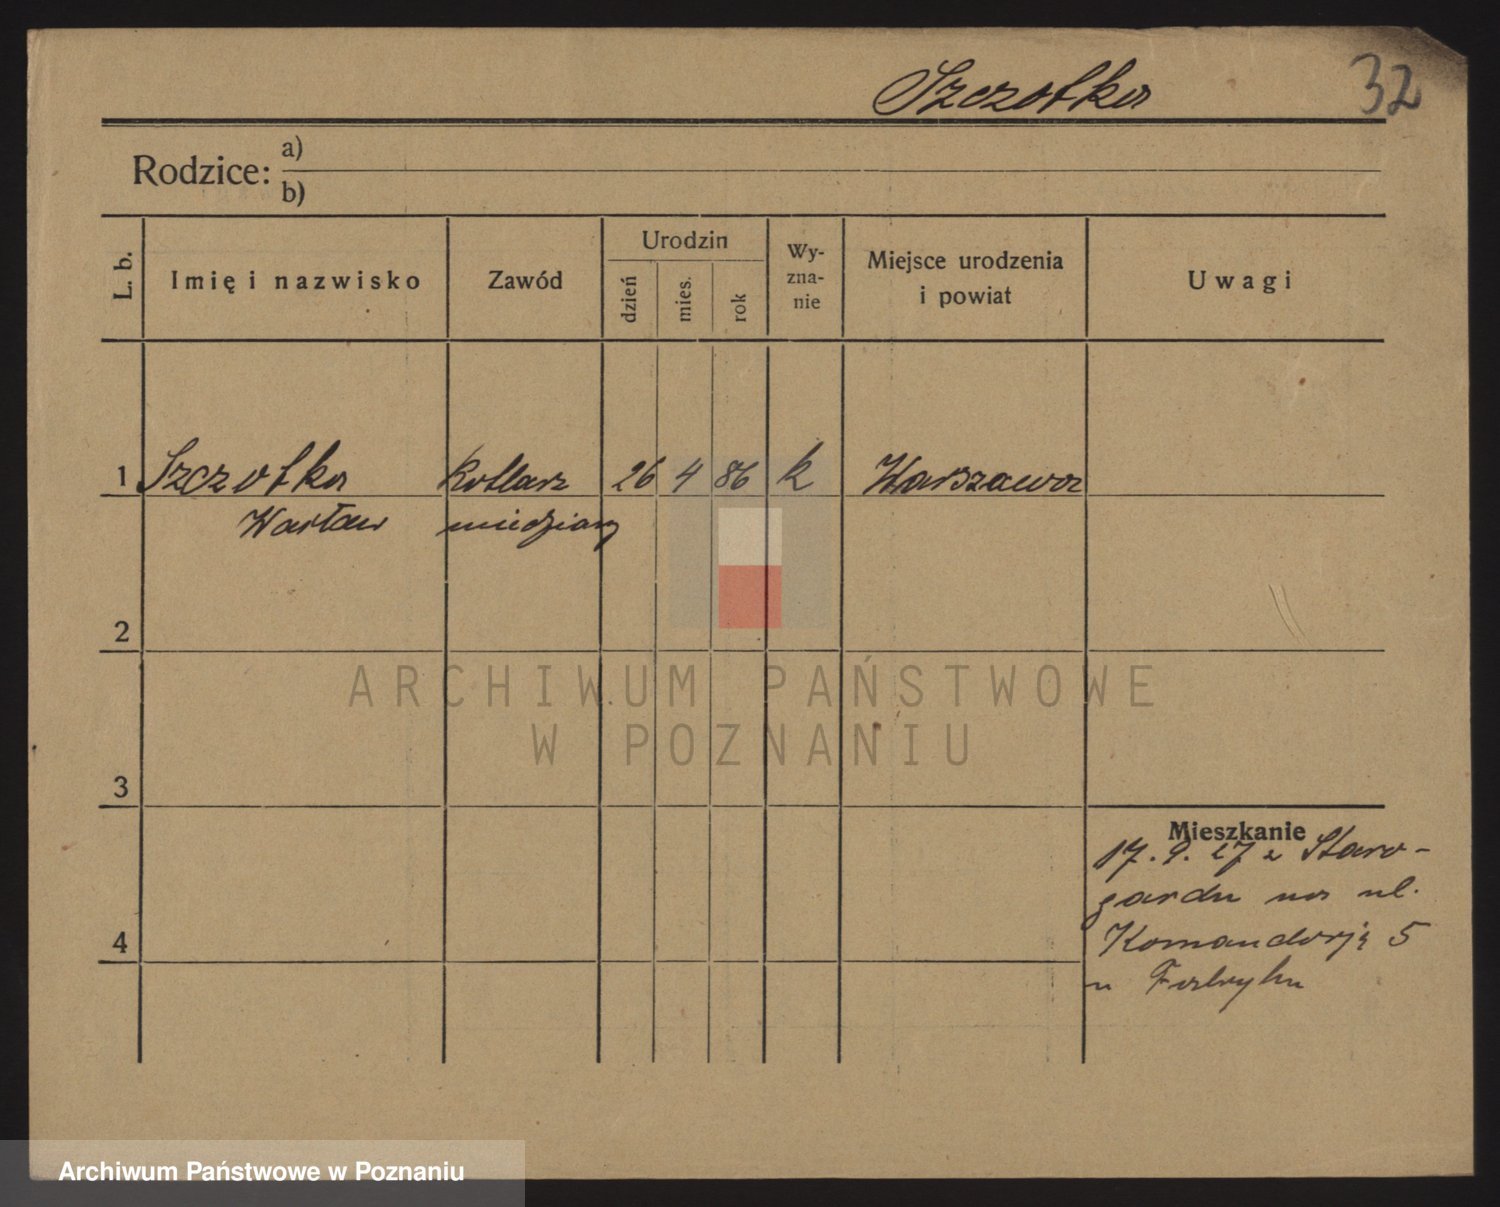 Szczotka 32
Rodzice: a)
b)
L. b. Imię i nazwisko Zawód Urodzin dzień mies. rok Wy-zna-nie Miejsce urodzenia i powiat Uwagi
1 Szczotka kotlarz 26 4 86 k Warszawa
Wacław miedziany
2
ARCHIWUM PAŃSTWOWE
W POZNANIU
3
Mieszkanie
17. 9. 27 z Staro-
gardu na ul.
4 Komandorją 5
u Fabryku
Archiwum Państwowe w Poznaniu